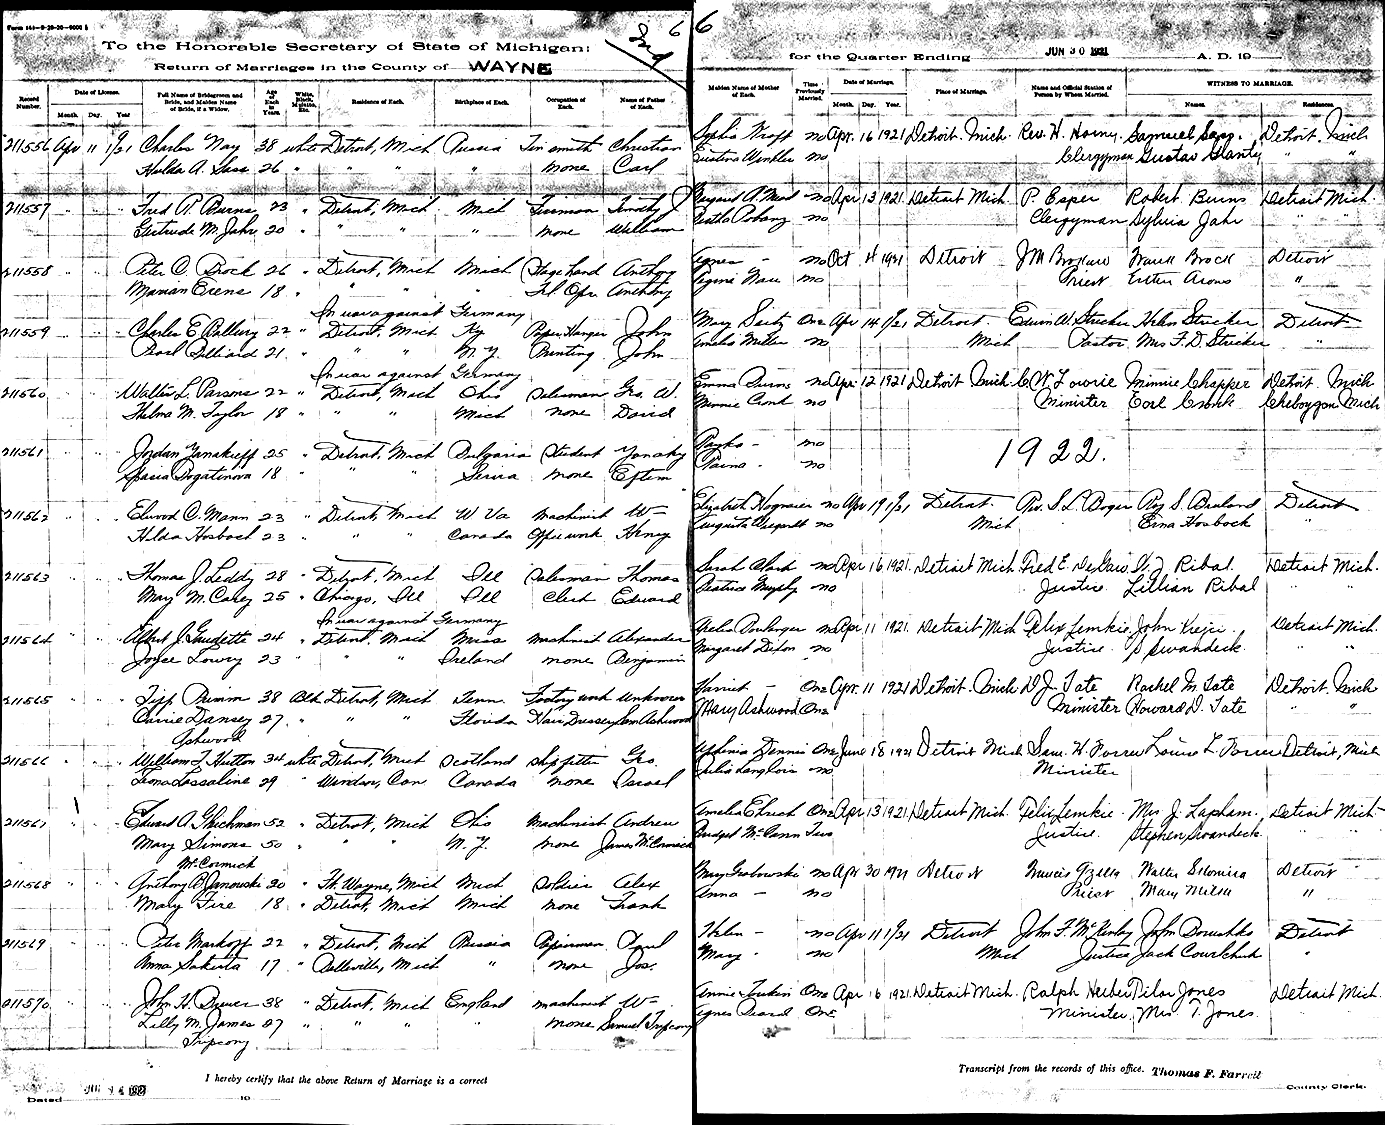 Form 161—8-26-20—6000 B
6
2nd
To the Honorable Secretary of State of Michigan:
Return of Marriages in the County of WAYNE
Record Number.
Date of License.
Month. Day. Year.
Full Name of Bridegroom and Bride, and Maiden Name of Bride, if a Widow.
Age of Each in Years.
White, Black, Mulatto, Etc.
Residence of Each.
Birthplace of Each.
Occupation of Each.
Name of Father of Each.
211556 Apr 11 1921 Charles May 38 white Detroit, Mich Russia Tin smith Christian
Hulda A. Sass 26 " " " " none Carl
211557 " " " Fred A. Burns 23 " Detroit, Mich Mich Fireman Timothy J
Gertrude M. Jahr 20 " " " " none William
211558 " " " Peter C. Brock 26 " Detroit, Mich Mich Stage hand Anthony
Marian Erens 18 " " " " Tel Opr Anthony
In war against Germany
211559 " " " Charles E. 22 " Detroit, Mich Ky Paper Hanger John
Pearl 21 " " " N. Y. Printing John
In war against Germany
211560 " " " Walter L. Parsons 22 " Detroit, Mich Ohio Salesman Geo. W.
Thelma M. Taylor 18 " " " Mich none David
211561 " " " Jordan Yanakieff 25 " Detroit, Mich Bulgaria Student
Spasia Bogatinova 18 " " Servia none Eftem
211562 " " " Elwood C. Mann 23 " Detroit, Mich W Va machinist Wm
Hilda Hosbach 23 " " " Canada Office work Henry
211563 " " " Thomas J. Leddy 28 " Detroit, Mich Ill Salesman Thomas
Mary M. Carey 25 " Chicago, Ill Ill Clerk Edward
In war against Germany
211564 " " " Albert J. Gaudette 24 " Detroit, Mich Mass machinist Alexander
Joyce Lowry 23 " " " Ireland none Benjamin
211565 " " " Tipp 38 Blk Detroit, Mich Tenn Factory work unknown
Carrie Dansey 27 " " " Florida Hair Dresser Sam Ashwood
Ashwood
211566 " " " William T. Hutton 34 white Detroit, Mich Scotland ship fitter Geo.
Leona Lassaline 29 " Windsor, Can Canada none Israel
211567 " " " Edward A. 52 " Detroit, Mich Ohio Machinist Andrew
Mary Simons 50 " " " N. Y. none James McCormick
McCormick
211568 " " " Anthony B. Janowski 20 " Ft. Wayne, Mich Mich Soldier Alex
Mary Fire 18 " Detroit, Mich Mich none Frank
211569 " " " Peter Markoff 22 " Detroit, Mich Russia Repairman Paul
Anna Sakuta 17 " Belleville, Mich " none Jos.
211570 " " " John H. Brewer 38 " Detroit, Mich England machinist Wm
Lilly M. James 27 " " " " none Samuel Tripcony
Tripcony
I hereby certify that the above Return of Marriage is a correct
Dated 19
6
for the Quarter Ending JUN 30 1921 A. D. 19
Maiden Name of Mother of Each.
Time Previously Married.
Date of Marriage.
Month. Day. Year.
Place of Marriage.
Name and Official Station of Person by Whom Married.
WITNESS TO MARRIAGE.
Names. Residences.
Sophia Kropf no Apr. 16 1921 Detroit. Mich. Rev. H. Horny. Samuel Sapp. Detroit. Mich
Winkler no Clergyman Gustav Glantz " "
Margaret A. no Apr 13 1921 Detroit Mich. P. Esper Robert Burns Detroit Mich.
no Clergyman Sylvia Jahr " "
Agnes - no Oct 4 1921 Detroit J M Frank Brock Detroit
Regina no Priest "
Mary Seitz One Apr 14 1921 Detroit. Edwin W. Stricker Helen Stricker Detroit
Amelia Miller no Mich Pastor Mrs F. D. Stricker "
Emma Burns no Apr 12 1921 Detroit Mich C W Lowrie Minnie Chapper Detroit Mich
Minnie Cronk no Minister Earl Cronk Cheboygan Mich
- no
- no
1922.
Elizabeth no Apr 19 1921 Detroit. Rev. S. L. Boger Roy S. Detroit
Augusta no Mich Erna Hosbach "
Sarah Clark no Apr 16 1921. Detroit Mich Fred E. W. J. Ribal. Detroit Mich.
Beatrice Murphy no Justice. Lillian Ribal " "
Boulanger no Apr 11 1921. Detroit Mich Felix Lemkie John Krejci. Detroit Mich.
Margaret Dixon no Justice. S Swandeck. " "
Harriet - One Apr. 11 1921 Detroit. Mich D. J. Tate Rachel M. Tate Detroit. Mich
Mary Ashwood One Minister Howard D. Tate " "
Euphemia Dennis One June 18 1921 Detroit Mich Sam. H. Forrer Louise L. Forrer Detroit, Mich
Julia Langlois no Minister
Amelia Ehrich One Apr 13 1921. Detroit Mich. Felix Lemkie Mrs J. Lapham. Detroit Mich
Bridget McCann Two Justice. Stephen Swandeck. "
Mary Grabowski no Apr 30 1921 Detroit Detroit
Anna - no Priest Mary "
Helen - no Apr 11 1921 Detroit John F. McKinley John Detroit
Mary - no Mich Justice Jack "
Annie One Apr 16 1921. Detroit Mich. Ralph Pilar Jones Detroit Mich.
Agnes One Minister. Mrs T. Jones.
Transcript from the records of this office. Thomas F. Farrell
County Clerk.